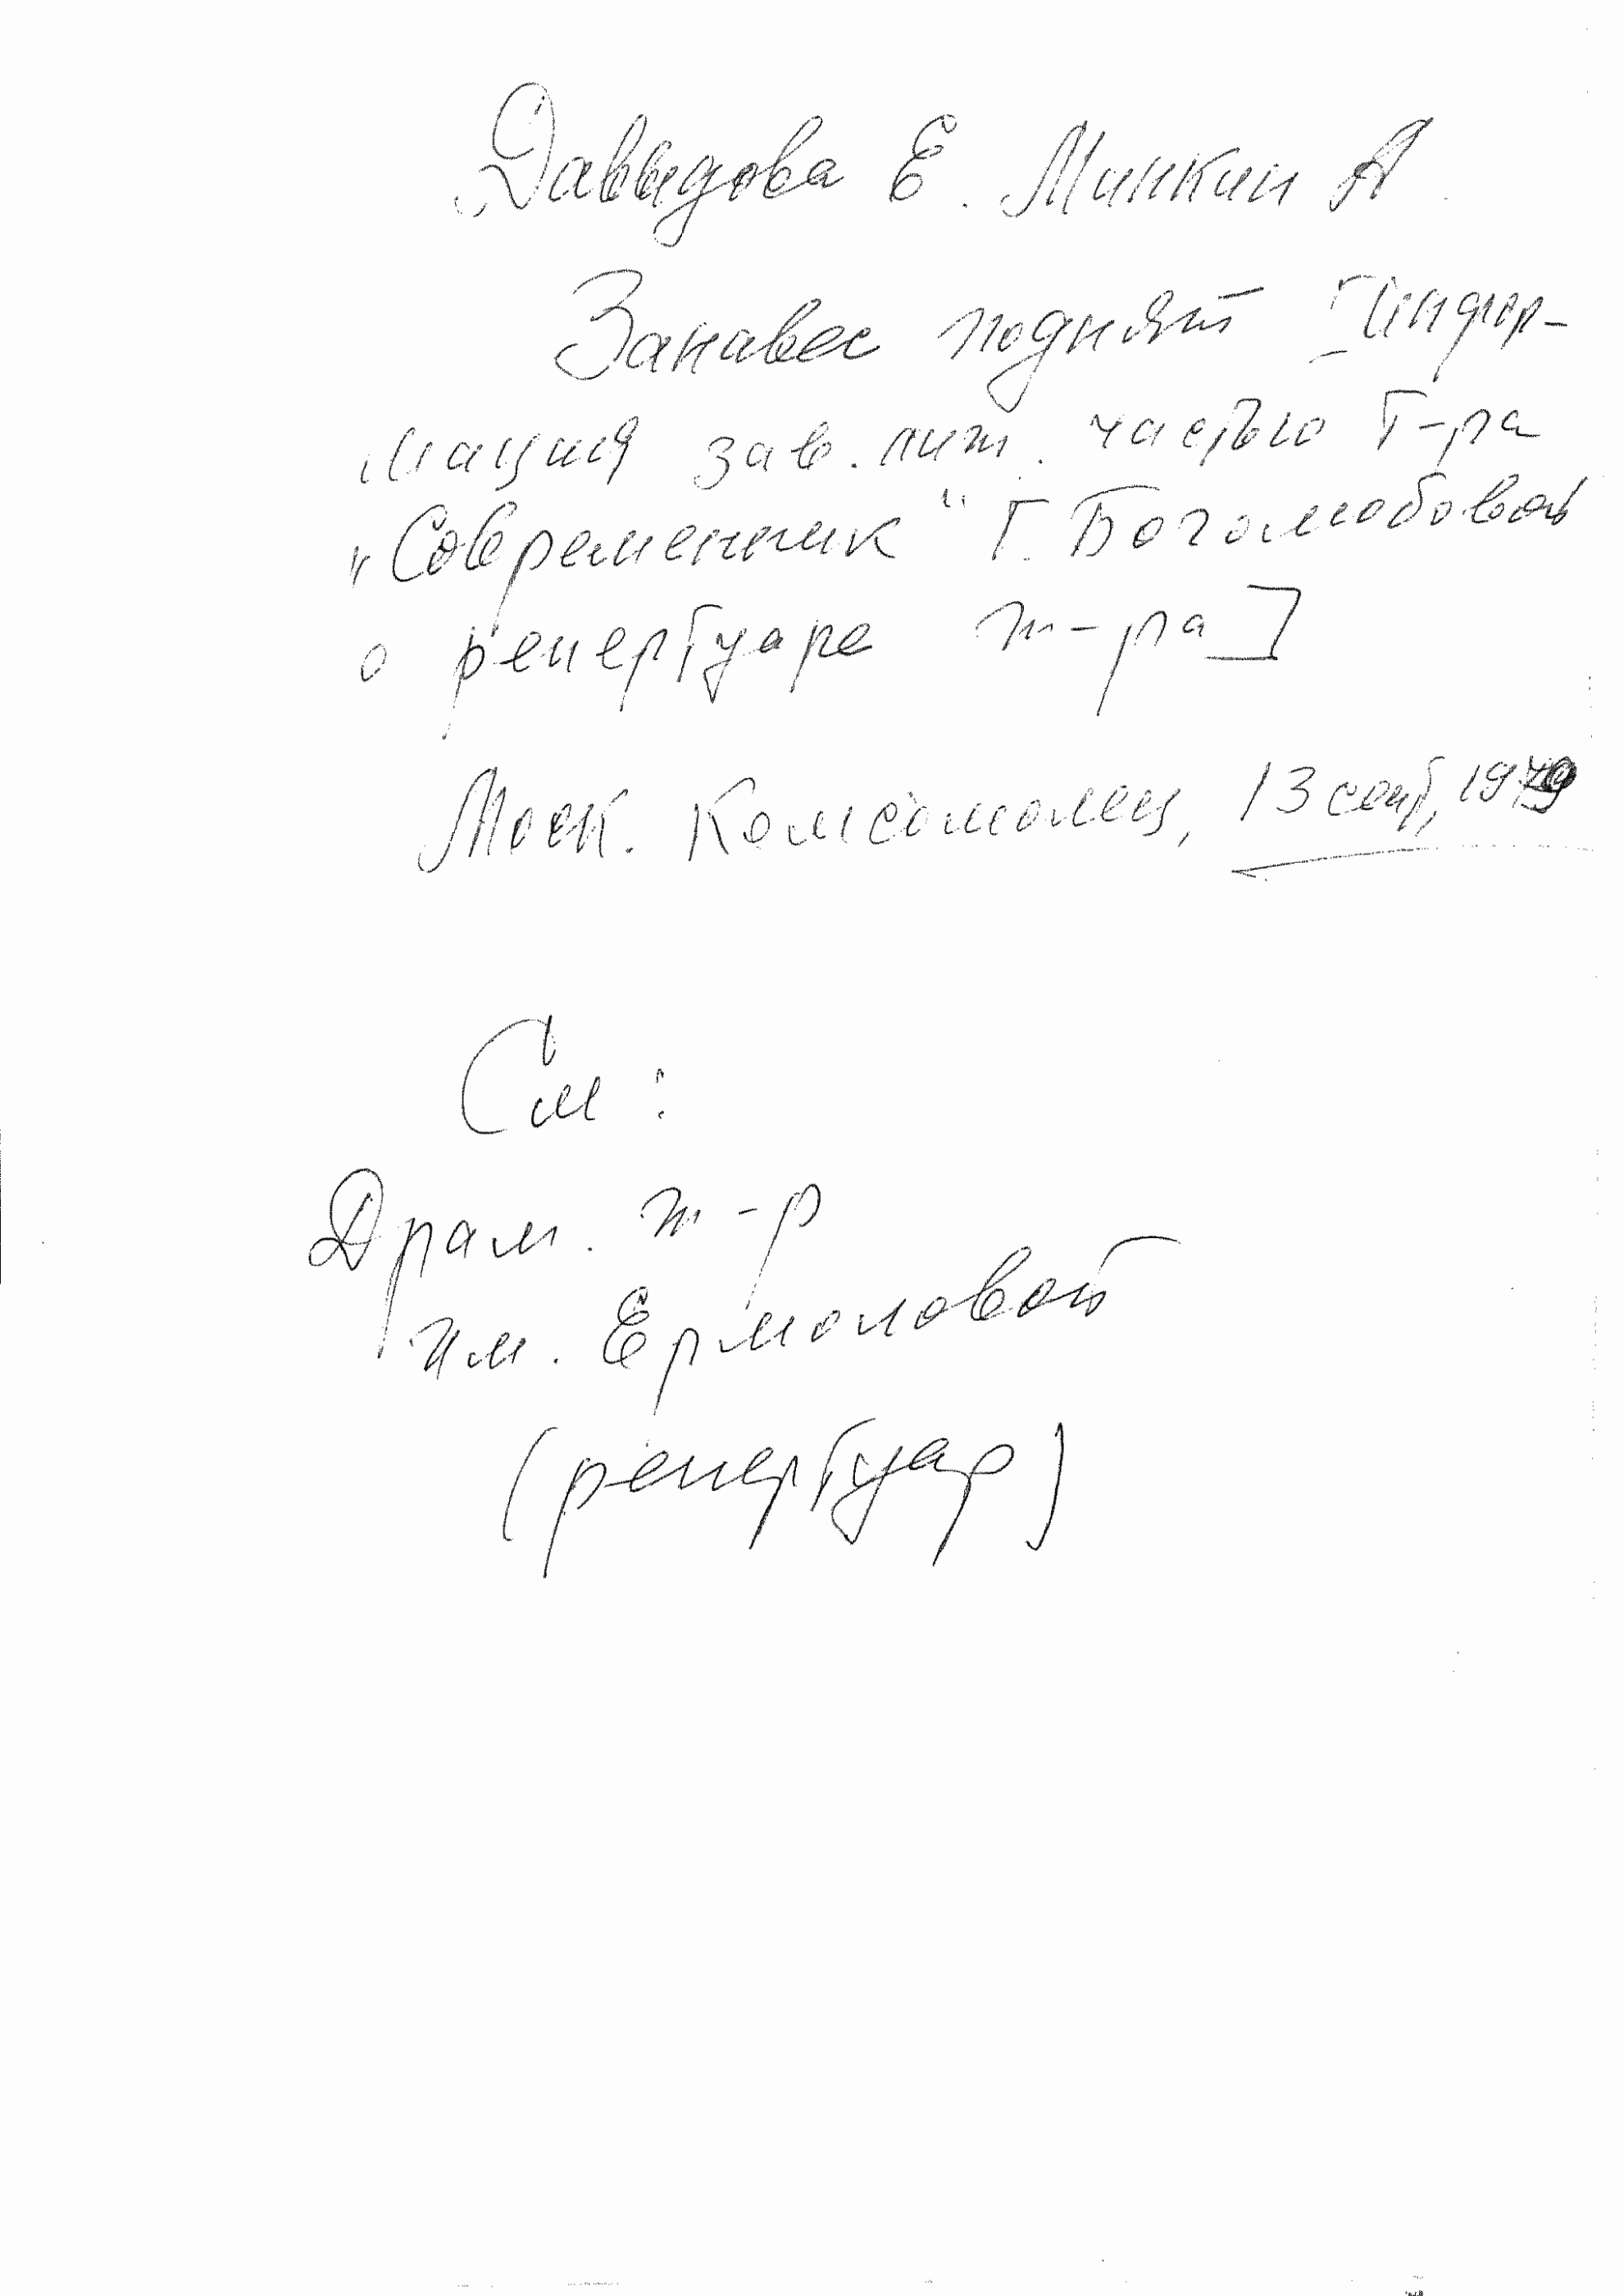 Давыдова Е. Минкин А.
Занавес поднят [Инфор-
мация зав. лит. частью т-ра
"Современник" Г. Боголюбовой
о репертуаре т-ра]
Моск. Комсомолец, 13 сент, 1979
См:
Драм. т-р
им. Ермоловой
(репертуар)